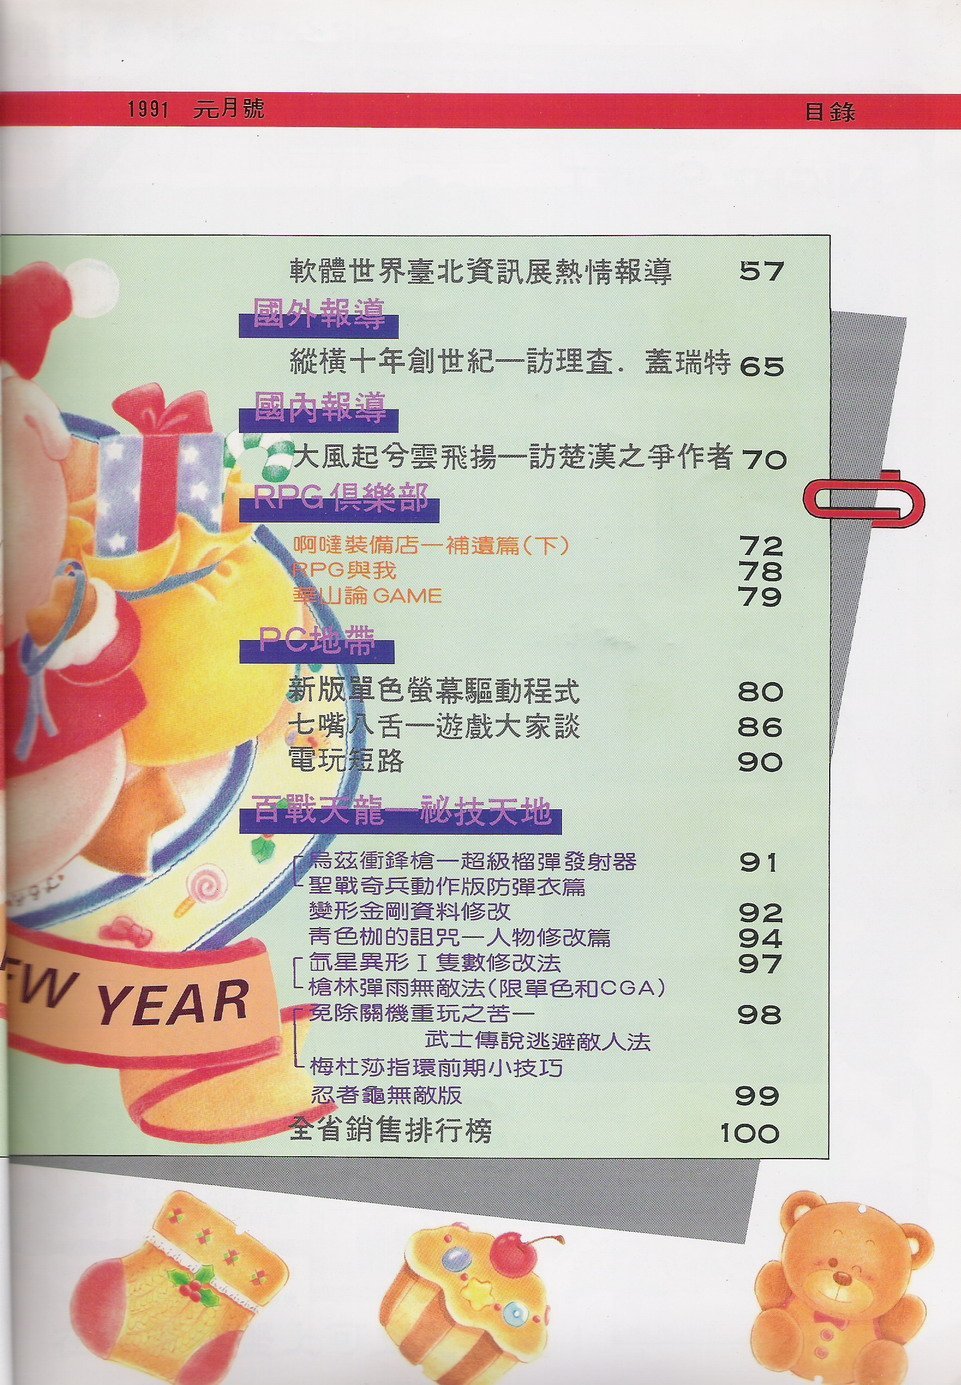 1991 元月號
目錄
軟體世界臺北資訊展熱情報導 57
國外報導
縱橫十年創世紀—訪理查．蓋瑞特 65
國內報導
大風起兮雲飛揚—訪楚漢之爭作者 70
RPG俱樂部
啊噠裝備店—補遺篇（下） 72
RPG與我 78
華山論GAME 79
PC地帶
新版單色螢幕驅動程式 80
七嘴八舌—遊戲大家談 86
電玩短路 90
百戰天龍—祕技天地
烏茲衝鋒槍—超級榴彈發射器 91
聖戰奇兵動作版防彈衣篇
變形金剛資料修改 92
青色枷的詛咒—人物修改篇 94
氙星異形Ⅰ隻數修改法 97
槍林彈雨無敵法（限單色和CGA）
免除關機重玩之苦— 98
武士傳說逃避敵人法
梅杜莎指環前期小技巧
忍者龜無敵版 99
全省銷售排行榜 100
EW YEAR